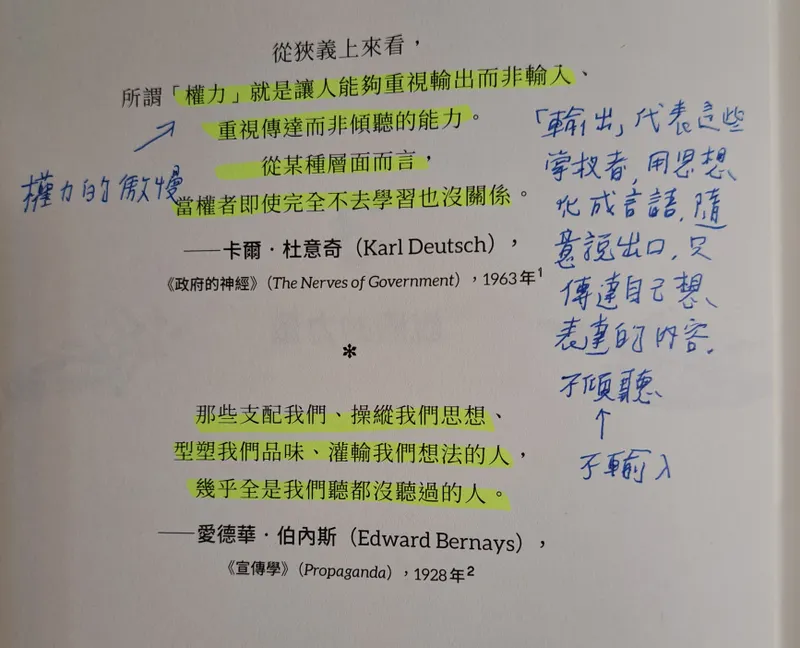 從狹義上來看，
所謂「權力」就是讓人能夠重視輸出而非輸入、
重視傳達而非傾聽的能力。
從某種層面而言，
當權者即使完全不去學習也沒關係。
——卡爾．杜意奇（Karl Deutsch），
《政府的神經》（The Nerves of Government），1963年1
*
那些支配我們、操縱我們思想、
型塑我們品味、灌輸我們想法的人，
幾乎全是我們聽都沒聽過的人。
——愛德華．伯內斯（Edward Bernays），
《宣傳學》（Propaganda），1928年2
權力的傲慢
「輸出」代表這些
掌权者，用思想
化成言語，隨
意說出口，只
傳達自己想
表達的內容，
不傾聽
↑
不輸入